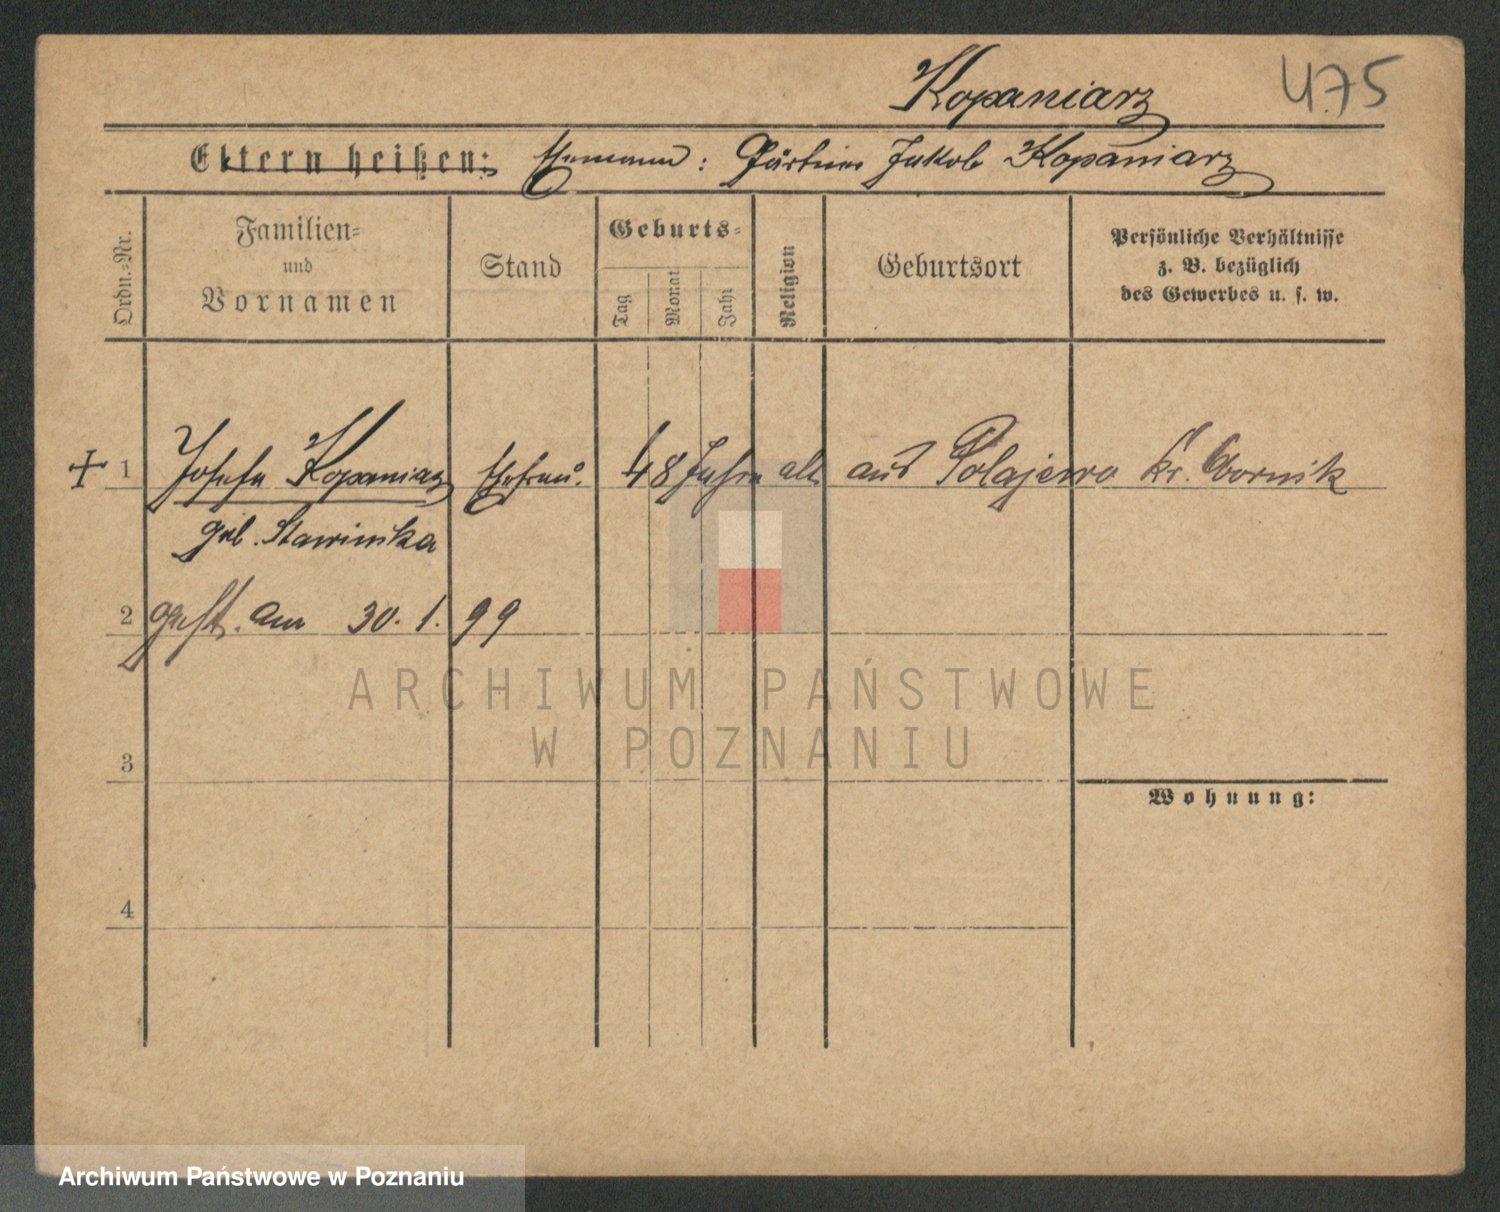 Kopaniarz
475
Eltern heißen: Ehemann: Gärtner Jakob Kopaniarz
Ordn.-Nr.
Familien-
und
Vornamen
Stand
Geburts-
Tag
Monat
Jahr
Religion
Geburtsort
Persönliche Verhältnisse
z. B. bezüglich
des Gewerbes u. s. w.
1 Josefa Kopaniarz Ehefrau. 48 Jahre alt. aus Polajewo Kr. Obornik
geb. Stawinska
2 gest. am 30. 1. 99
ARCHIWUM PAŃSTWOWE
W POZNANIU
3
Wohnung:
4
Archiwum Państwowe w Poznaniu